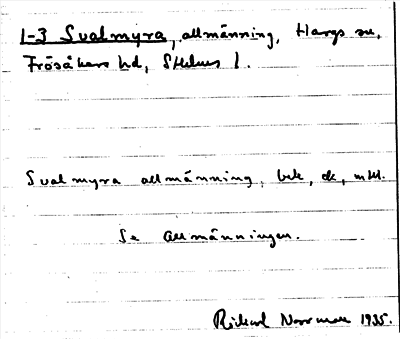 1-3 Svalmyra, allmänning, Hargs sn,
Frösåkers hd, Sthlms l.
Svalmyra allmänning, bek, ck, mtl.
Se Allmänningen.
Rickard Norrman 1935.